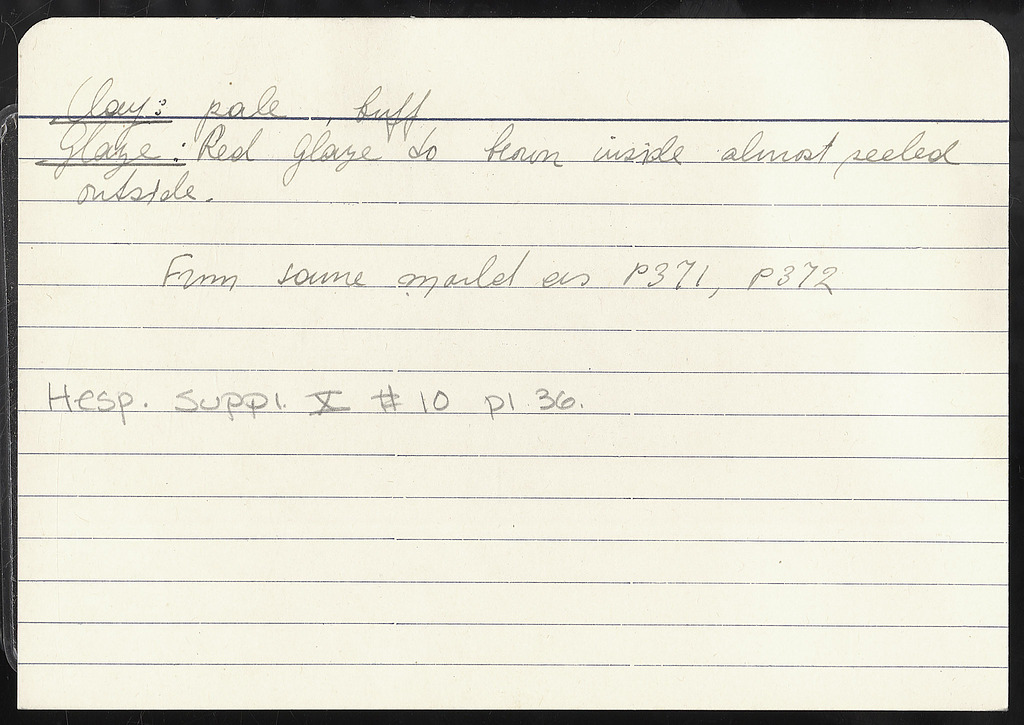 Clay: pale, buff
Glaze: Red glaze to brown inside almost peeled
outside.
From same mould as P371, P372
Hesp. Suppl. X # 10 pl 36.